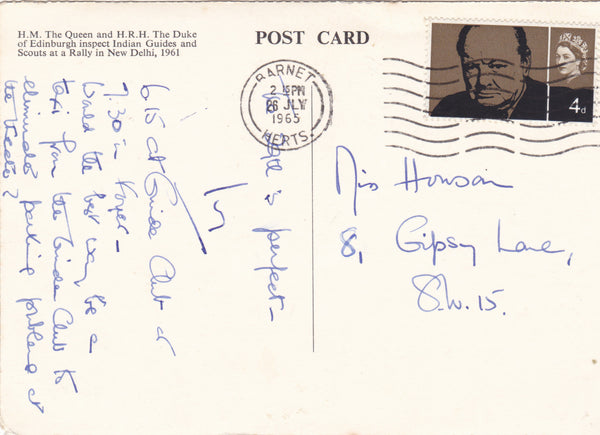 H.M. The Queen and H.R.H. The Duke
of Edinburgh inspect Indian Guides and
Scouts at a Rally in New Delhi, 1961
POST CARD
BARNET
2 15 PM
26 JLY
1965
HERTS.
4d
Miss Howson
8, Gipsy Lane,
S.W. 15.
is perfect –
6.15 at Guide Club or
7.30 in Foyer –
Would the best way be a
taxi from the Guide Club to
eliminate parking problems at
the theatre?